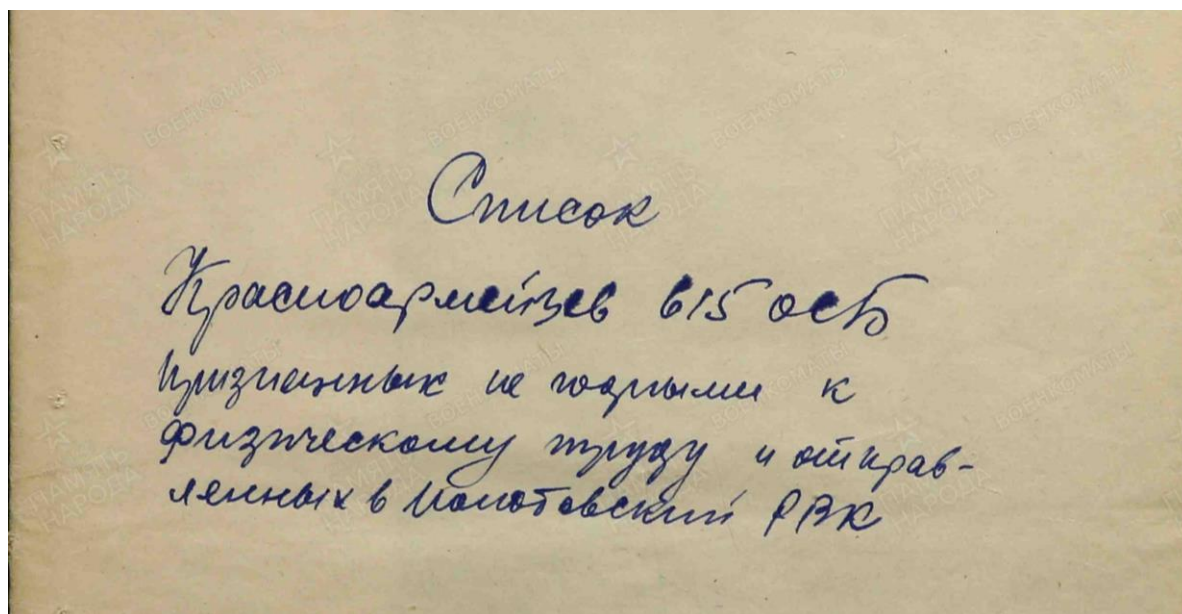 Список
Красноармейцев 615 ОСБ
признанных не годными к
физическому труду и отправ-
ленных в Молотовский РВК
ПАМЯТЬ НАРОДА
ВОЕНКОМАТЫ